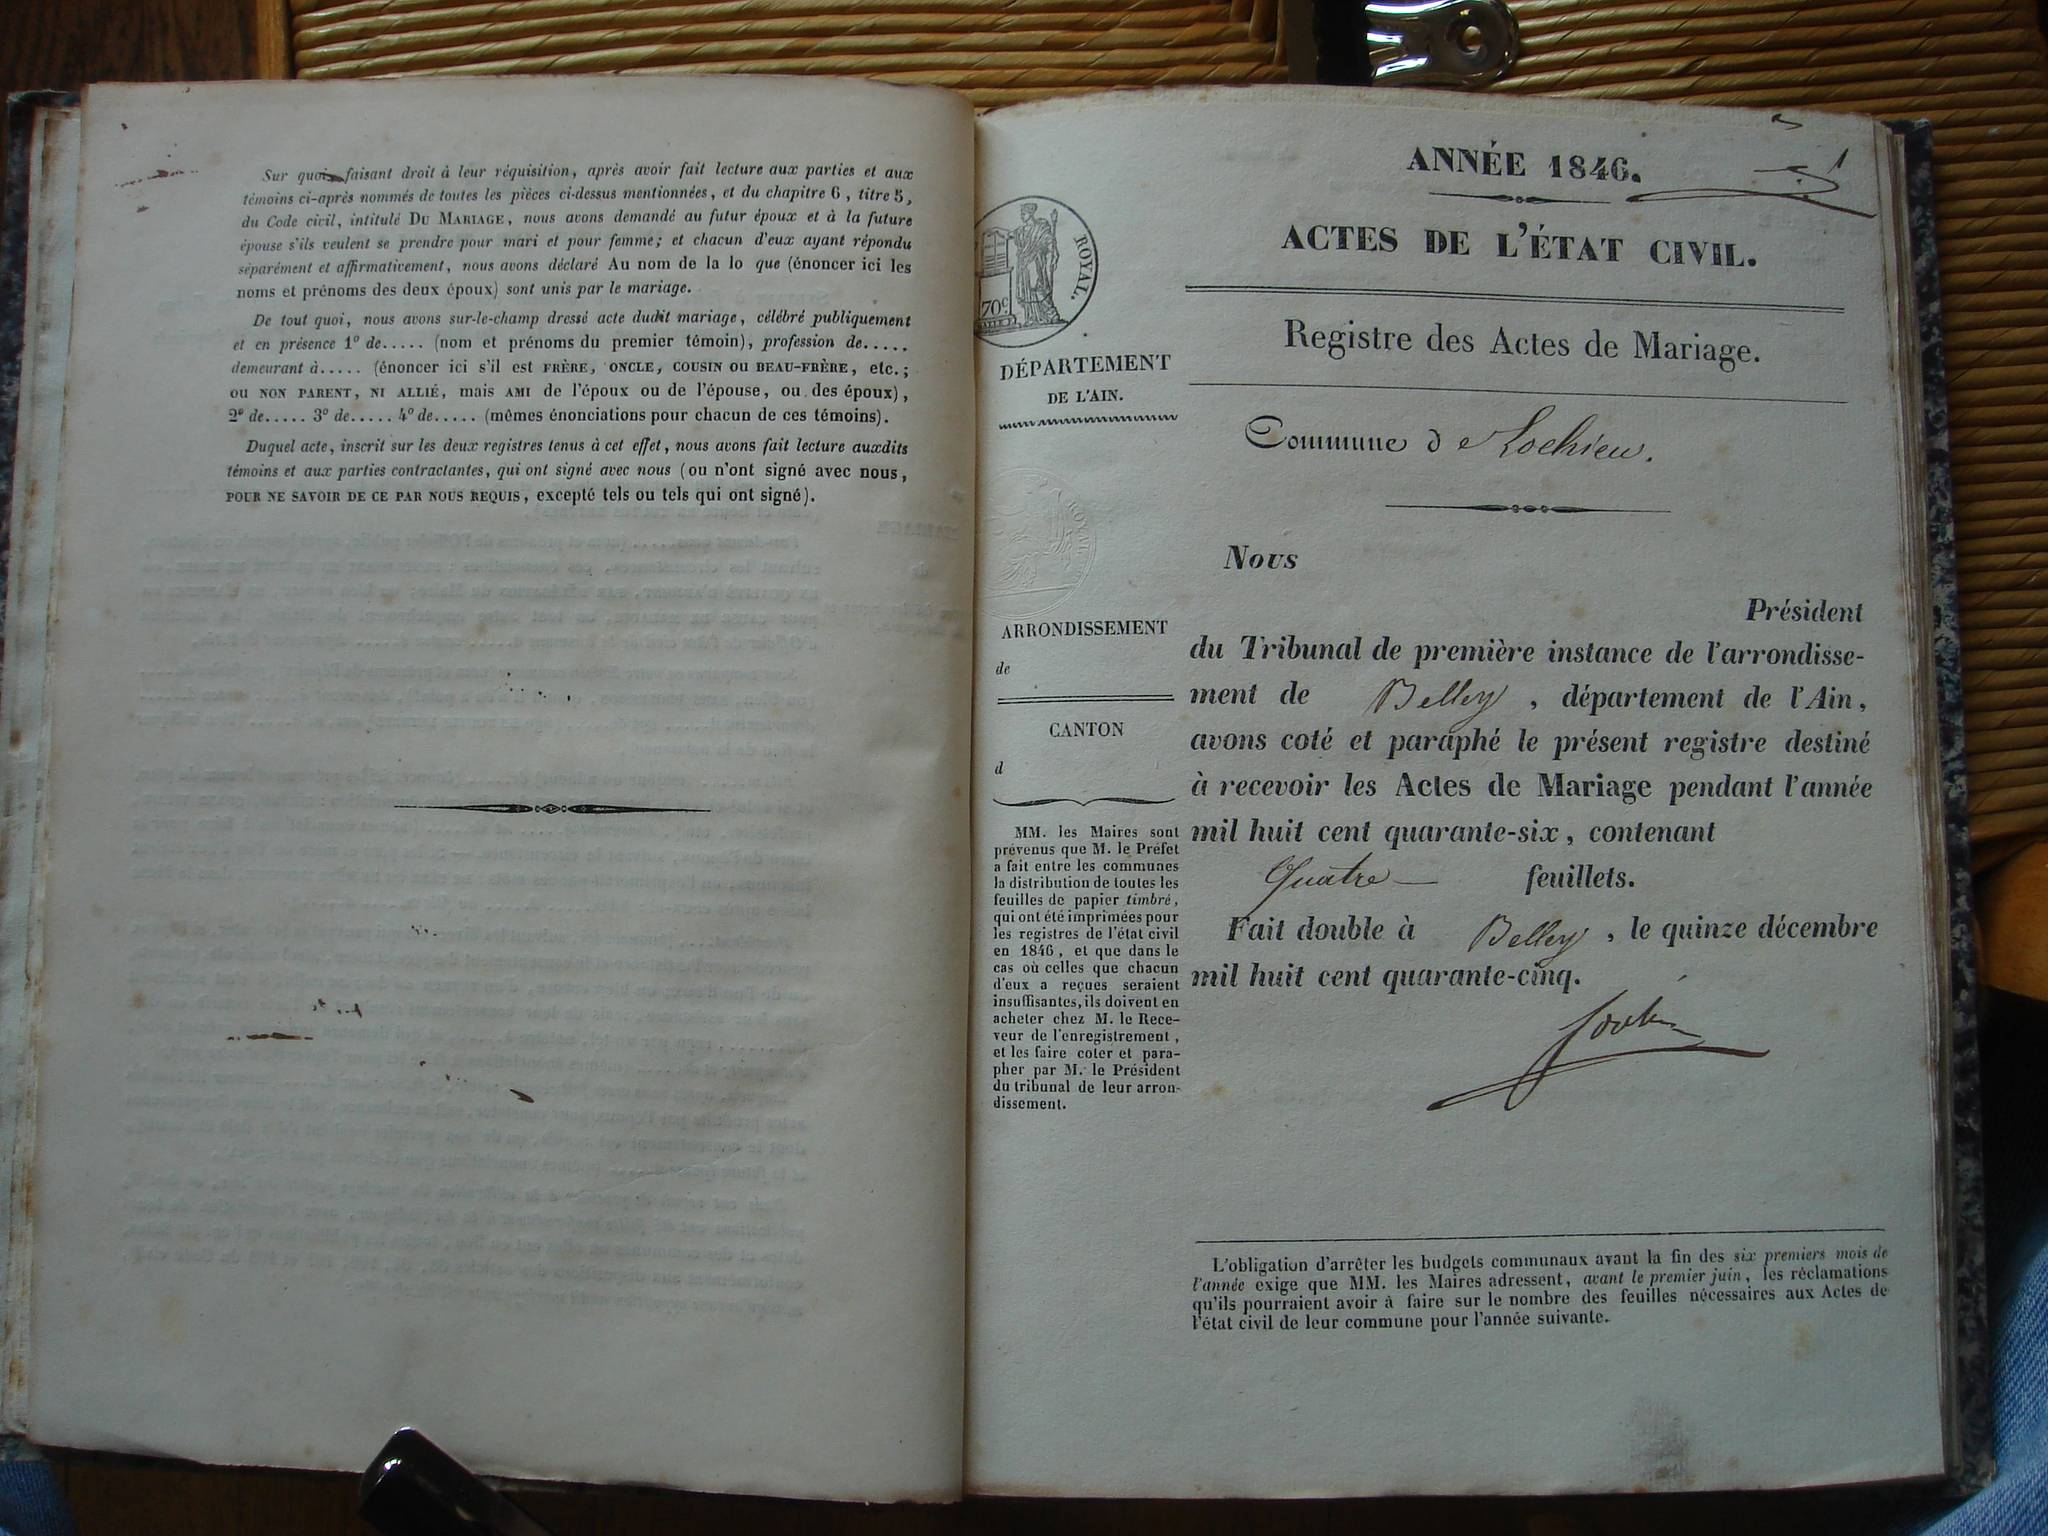 Sur quoi, faisant droit à leur réquisition, après avoir fait lecture aux parties et aux
témoins ci-après nommés de toutes les pièces ci-dessus mentionnées, et du chapitre 6, titre 5,
du Code civil, intitulé DU MARIAGE, nous avons demandé au futur époux et à la future
épouse s'ils veulent se prendre pour mari et pour femme; et chacun d'eux ayant répondu
séparément et affirmativement, nous avons déclaré Au nom de la lo que (énoncer ici les
noms et prénoms des deux époux) sont unis par le mariage.
De tout quoi, nous avons sur-le-champ dressé acte dudit mariage, célébré publiquement
et en présence 1º de..... (nom et prénoms du premier témoin), profession de.....
demeurant à..... (énoncer ici s'il est FRÈRE, ONCLE, COUSIN OU BEAU-FRÈRE, etc.;
OU NON PARENT, NI ALLIÉ, mais AMI de l'époux ou de l'épouse, ou des époux),
2º de..... 3º de..... 4º de..... (mêmes énonciations pour chacun de ces témoins).
Duquel acte, inscrit sur les deux registres tenus à cet effet, nous avons fait lecture auxdits
témoins et aux parties contractantes, qui ont signé avec nous (ou n'ont signé avec nous,
POUR NE SAVOIR DE CE PAR NOUS REQUIS, excepté tels ou tels qui ont signé).
ANNÉE 1846.
1
ACTES DE L'ÉTAT CIVIL.
Registre des Actes de Mariage.
Commune de Lochieu.
ROYAL.
70c
DÉPARTEMENT
DE L'AIN.
ARRONDISSEMENT
de
CANTON
d
MM. les Maires sont
prévenus que M. le Préfet
a fait entre les communes
la distribution de toutes les
feuilles de papier timbré,
qui ont été imprimées pour
les registres de l'état civil
en 1846, et que dans le
cas où celles que chacun
d'eux a reçues seraient
insuffisantes, ils doivent en
acheter chez M. le Rece-
veur de l'enregistrement,
et les faire coter et para-
pher par M. le Président
du tribunal de leur arron-
dissement.
Nous
Président
du Tribunal de première instance de l'arrondisse-
ment de Belley, département de l'Ain,
avons coté et paraphé le présent registre destiné
à recevoir les Actes de Mariage pendant l'année
mil huit cent quarante-six, contenant
Quatre feuillets.
Fait double à Belley, le quinze décembre
mil huit cent quarante-cinq.
L'obligation d'arrêter les budgets communaux avant la fin des six premiers mois de
l'année exige que MM. les Maires adressent, avant le premier juin, les réclamations
qu'ils pourraient avoir à faire sur le nombre des feuilles nécessaires aux Actes de
l'état civil de leur commune pour l'année suivante.